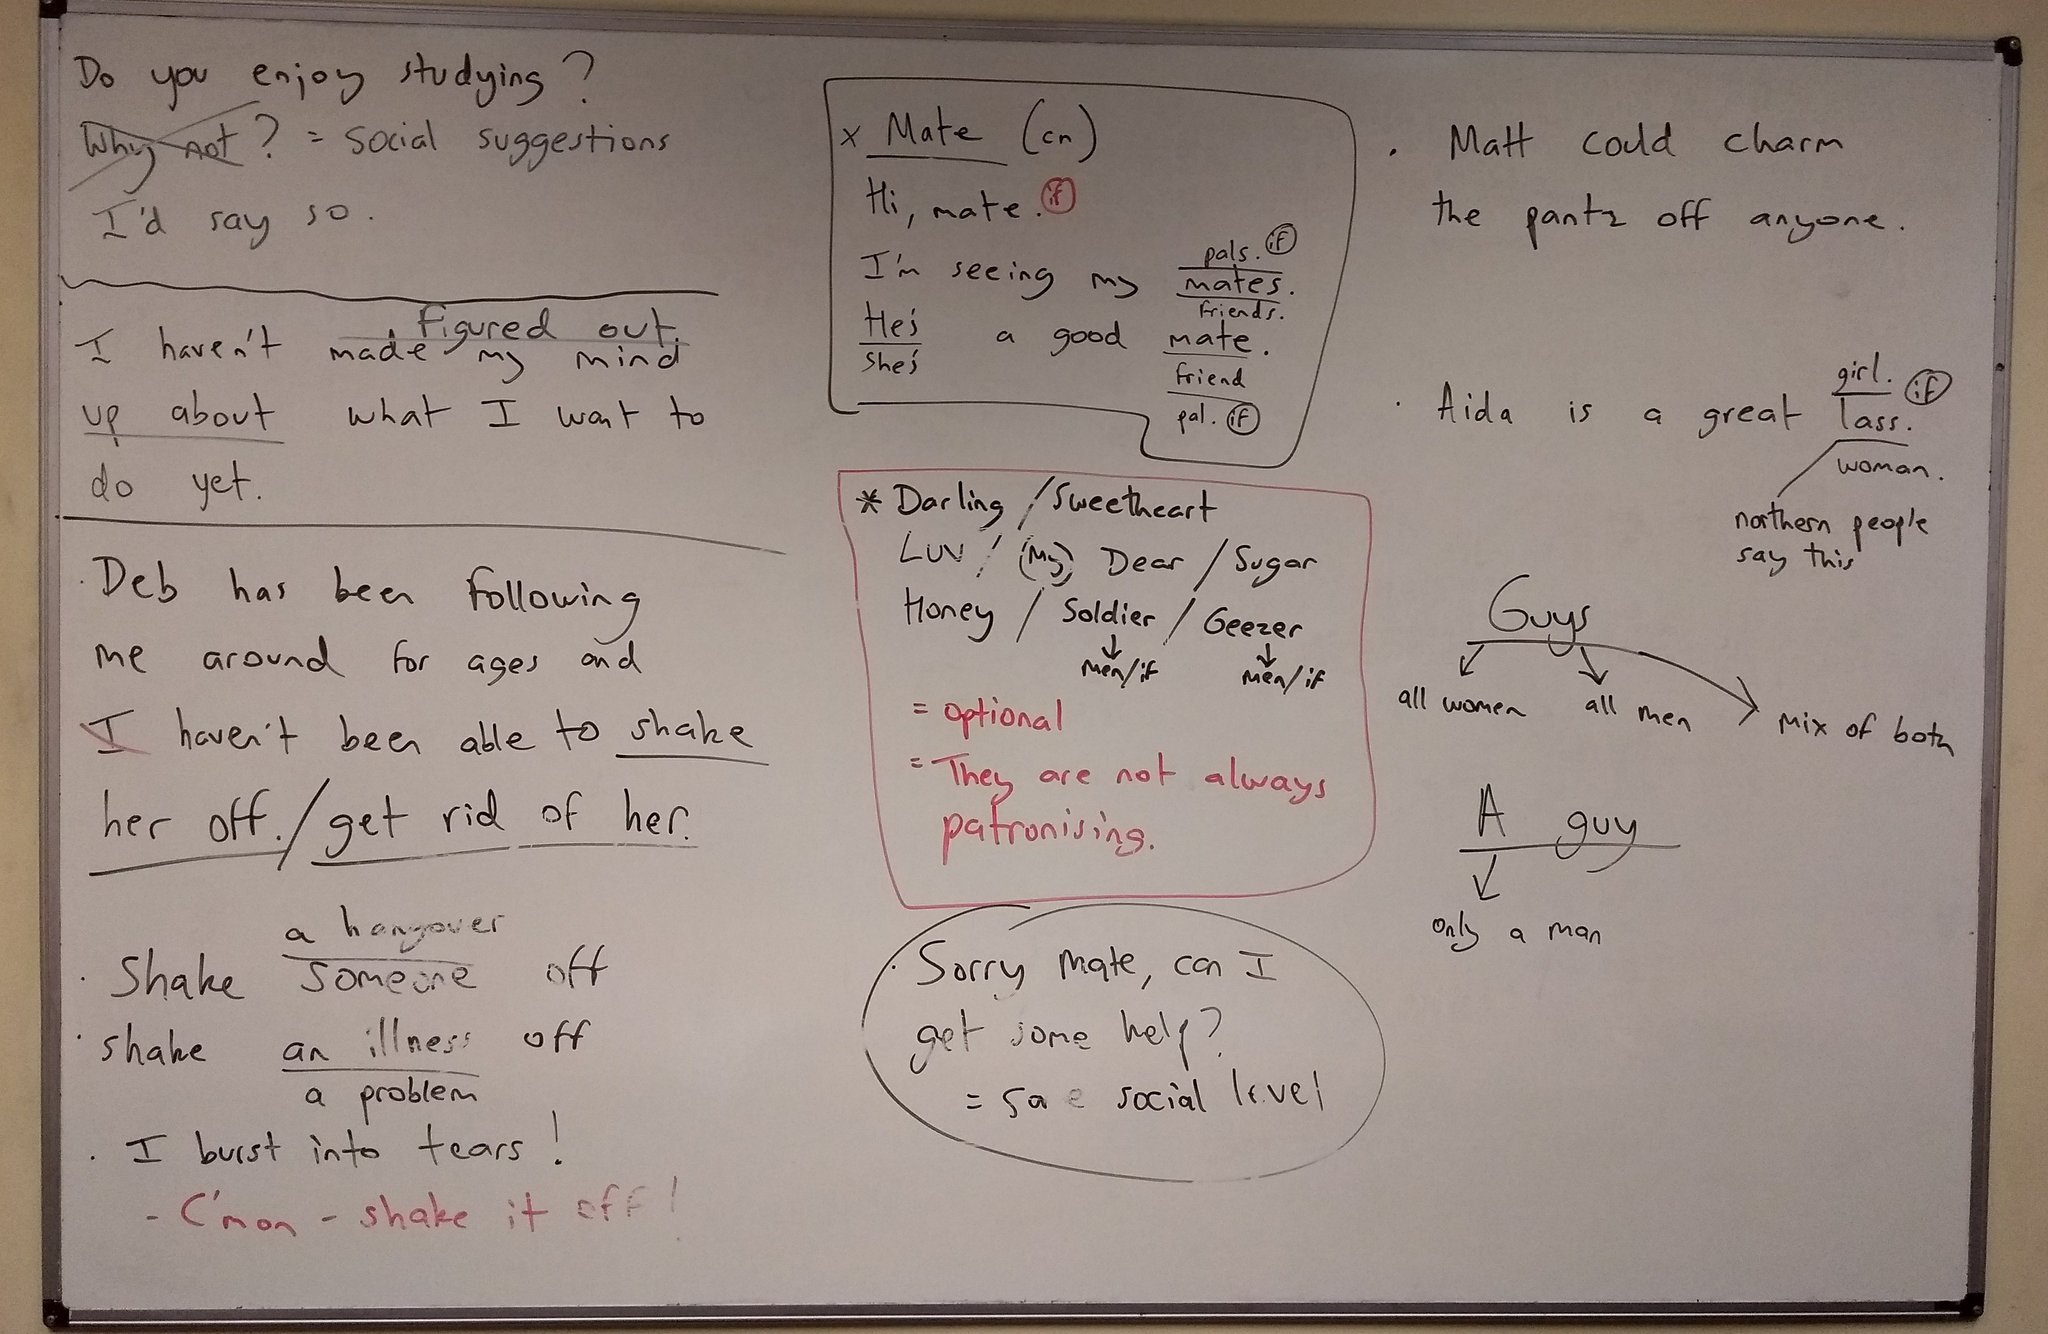 Do you enjoy studying?
Why not? = social suggestions
I'd say so.
figured out.
I haven't made my mind
up about what I want to
do yet.
· Deb has been following
me around for ages and
I haven't been able to shake
her off. / get rid of her.
a hangover
· Shake someone off
· shake an illness off
a problem
· I burst into tears!
- C'mon - shake it off!
x Mate (cn)
Hi, mate. if
pals. if
I'm seeing my mates.
friends.
He's a good mate.
She's
friend
pal. if
* Darling / Sweetheart
Luv / (My) Dear / Sugar
Honey / Soldier / Geezer
men/if men/if
= optional
= They are not always
patronising.
· Sorry mate, can I
get some help?
= social level
· Matt could charm
the pantz off anyone.
girl. if
· Aida is a great lass.
woman.
northern people
say this
Guys
all women all men mix of both
A guy
only a man